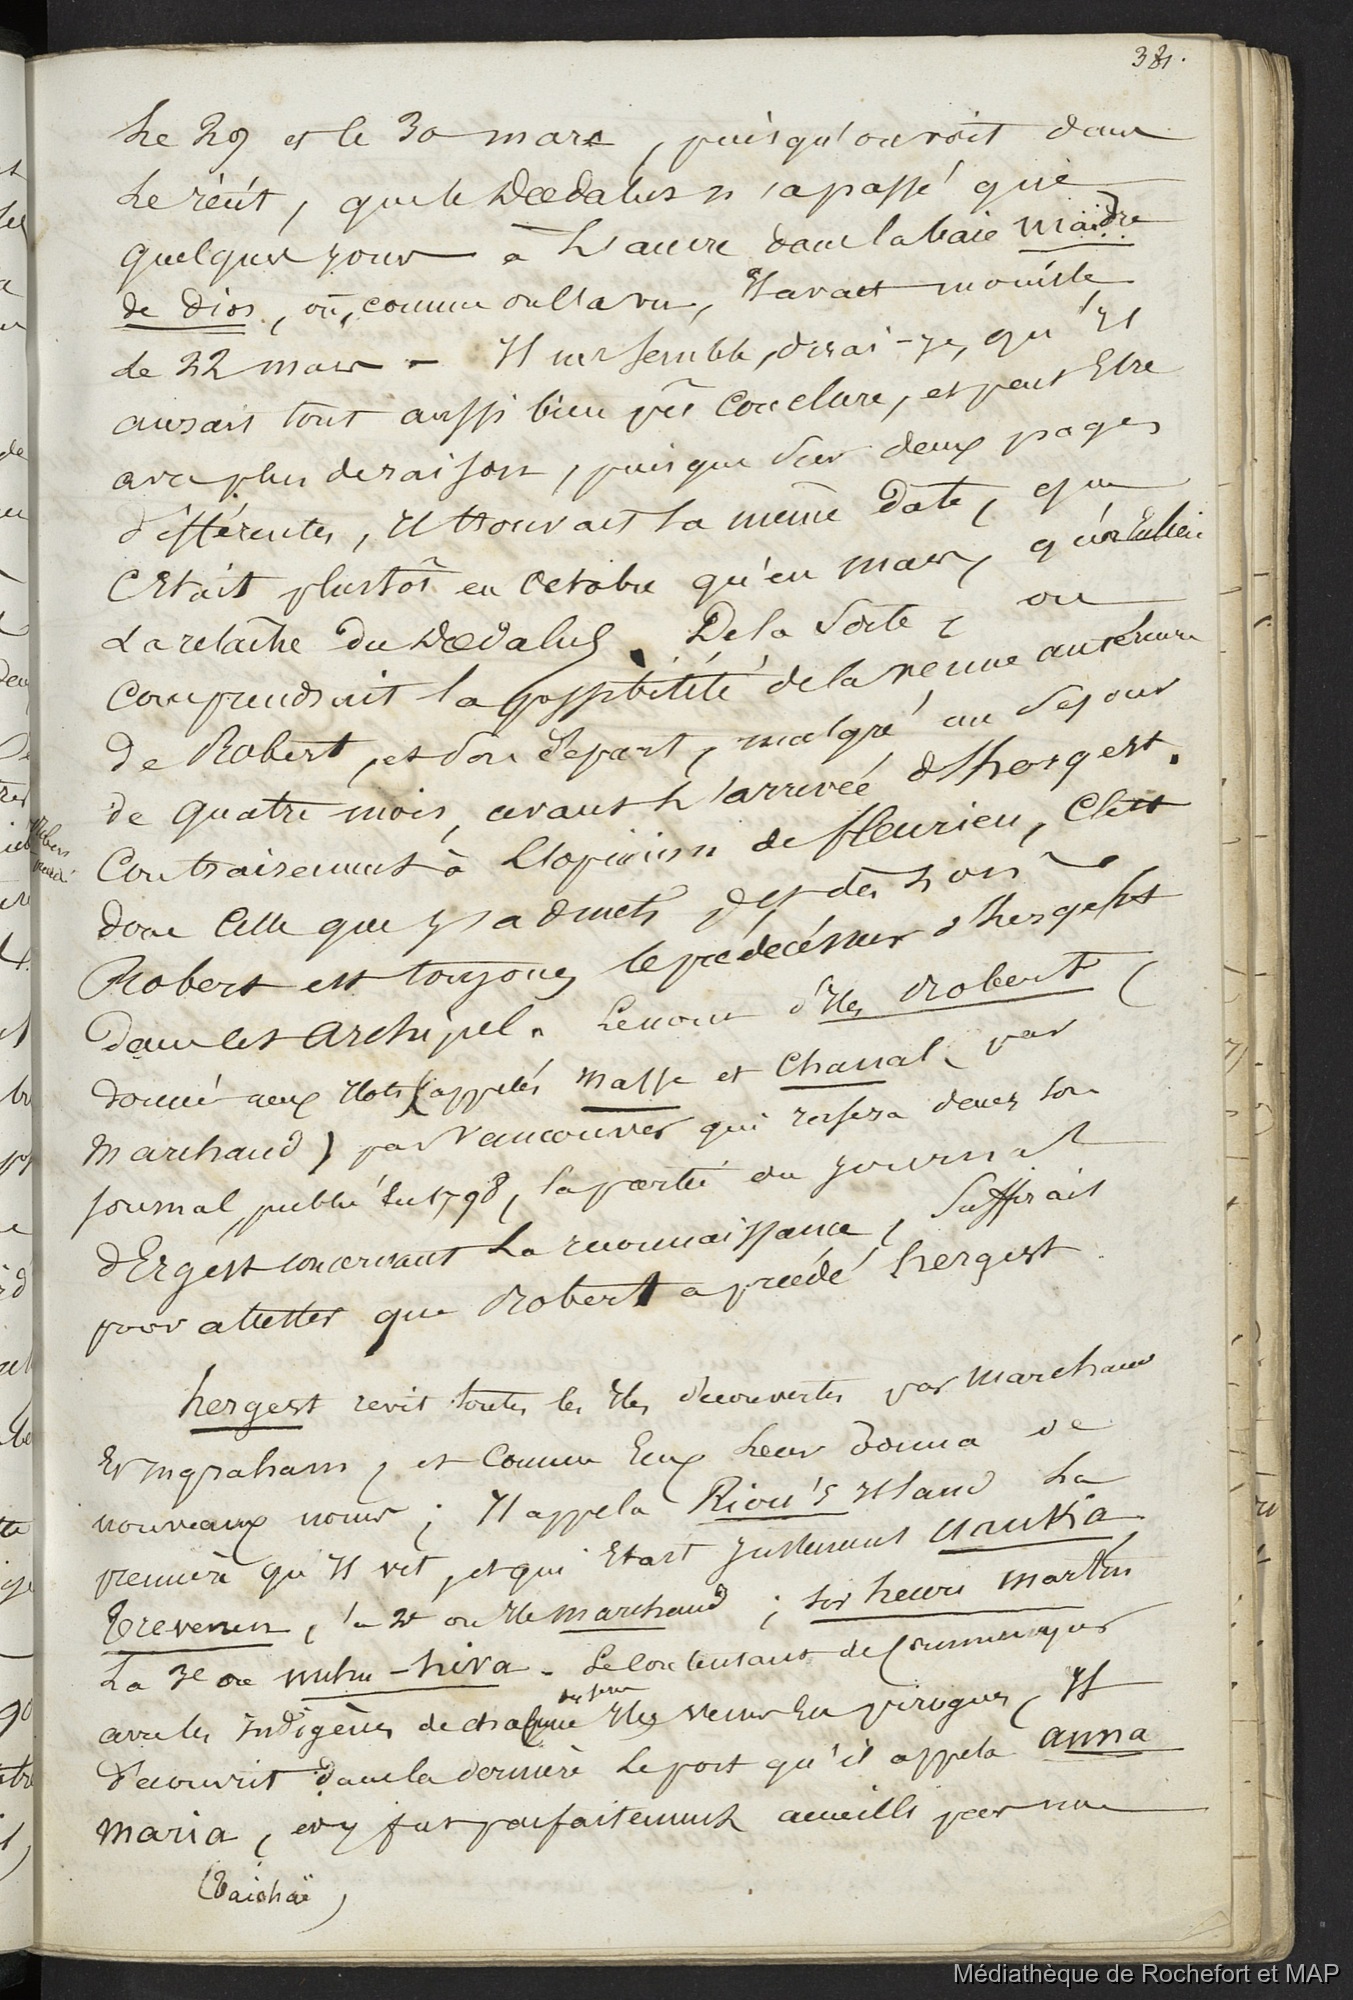 381.
Le 29 et le 30 mars, puisqu'on voit dans
Le récit, que le Dœdalus n'a passé que
quelques jours à L'ancre dans la baie Madre
de Dios, où, comme on l'a vu, Il avait mouillé
de 22 mars - Il me semble, dirai-je, qu'Il
aurait tout aussi bien pû Conclure, et peut Etre
avec plus de raison, puisque Sur deux pages
différentes, Il trouvait la même Date, que
C'Etait plustôt en Octobre qu'en mars, qu'eut lieu
La relâche Du Dœdalus. De la Sorte, on
Comprendrait la possibilité de la venue antérieure
de Robert, et Son Départ, malgré un Séjour
de quatre mois, avant L'arrivée d'hergest.
Contrairement à L'opinion de fleurieu, C'est
donc Celle que j'admets, et dès Lors
Robert est toujours le prédécésseur d'hergest
dans cet Archipel. Le nom d'Iles Robert
donné aux Ilots (appelés Masse et Chanal par
Marchand) par Vancouver qui inséra dans Son
Journal, publié En 1798, la partie du Journal
d'Ergest concernant La reconnaissance, Suffirait
pour attester que Robert a précédé hergest.
hergest revit toutes les Iles découvertes par Marchand
Et Ingraham, et Comme Eux Leur donna de
nouveaux noms; Il appela Riou's Island La
première qu'Il vit, et qui Etait justement
Trevenen, la 2e ou Ile Marchand; Sir henri Martin
La 3e ou nuhu-hiva. Se Contentant de Communiquer
avec les Indigènes de chaque Iles venus En pirogues, Il
découvrit dans la dernière Le port qu'il appela anna
Maria, et y fut parfaitement accueilli par une
(Taiohaë)